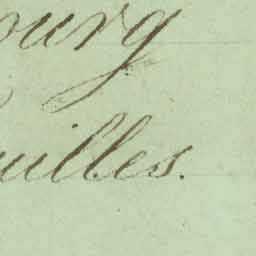 ourg
uilles.